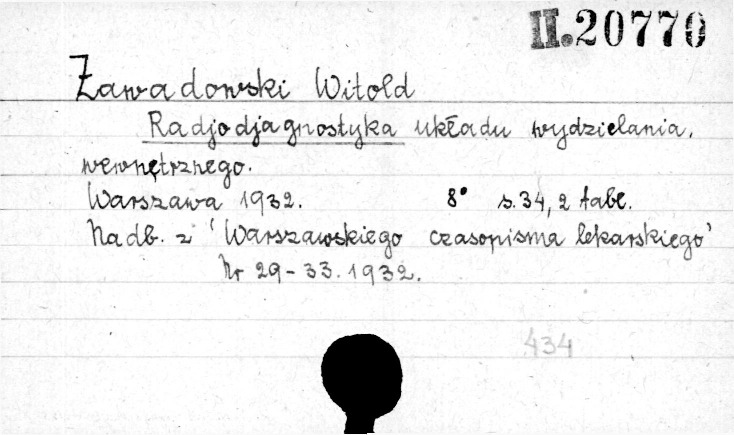 II.20770
Zawadowski Witold
Radjodjagnostyka układu wydzielania.
wewnętrznego.
Warszawa 1932. 8° s.34, 2 tabl.
Nadb. z 'Warszawskiego czasopisma lekarskiego'
Nr 29-33.1932.
434